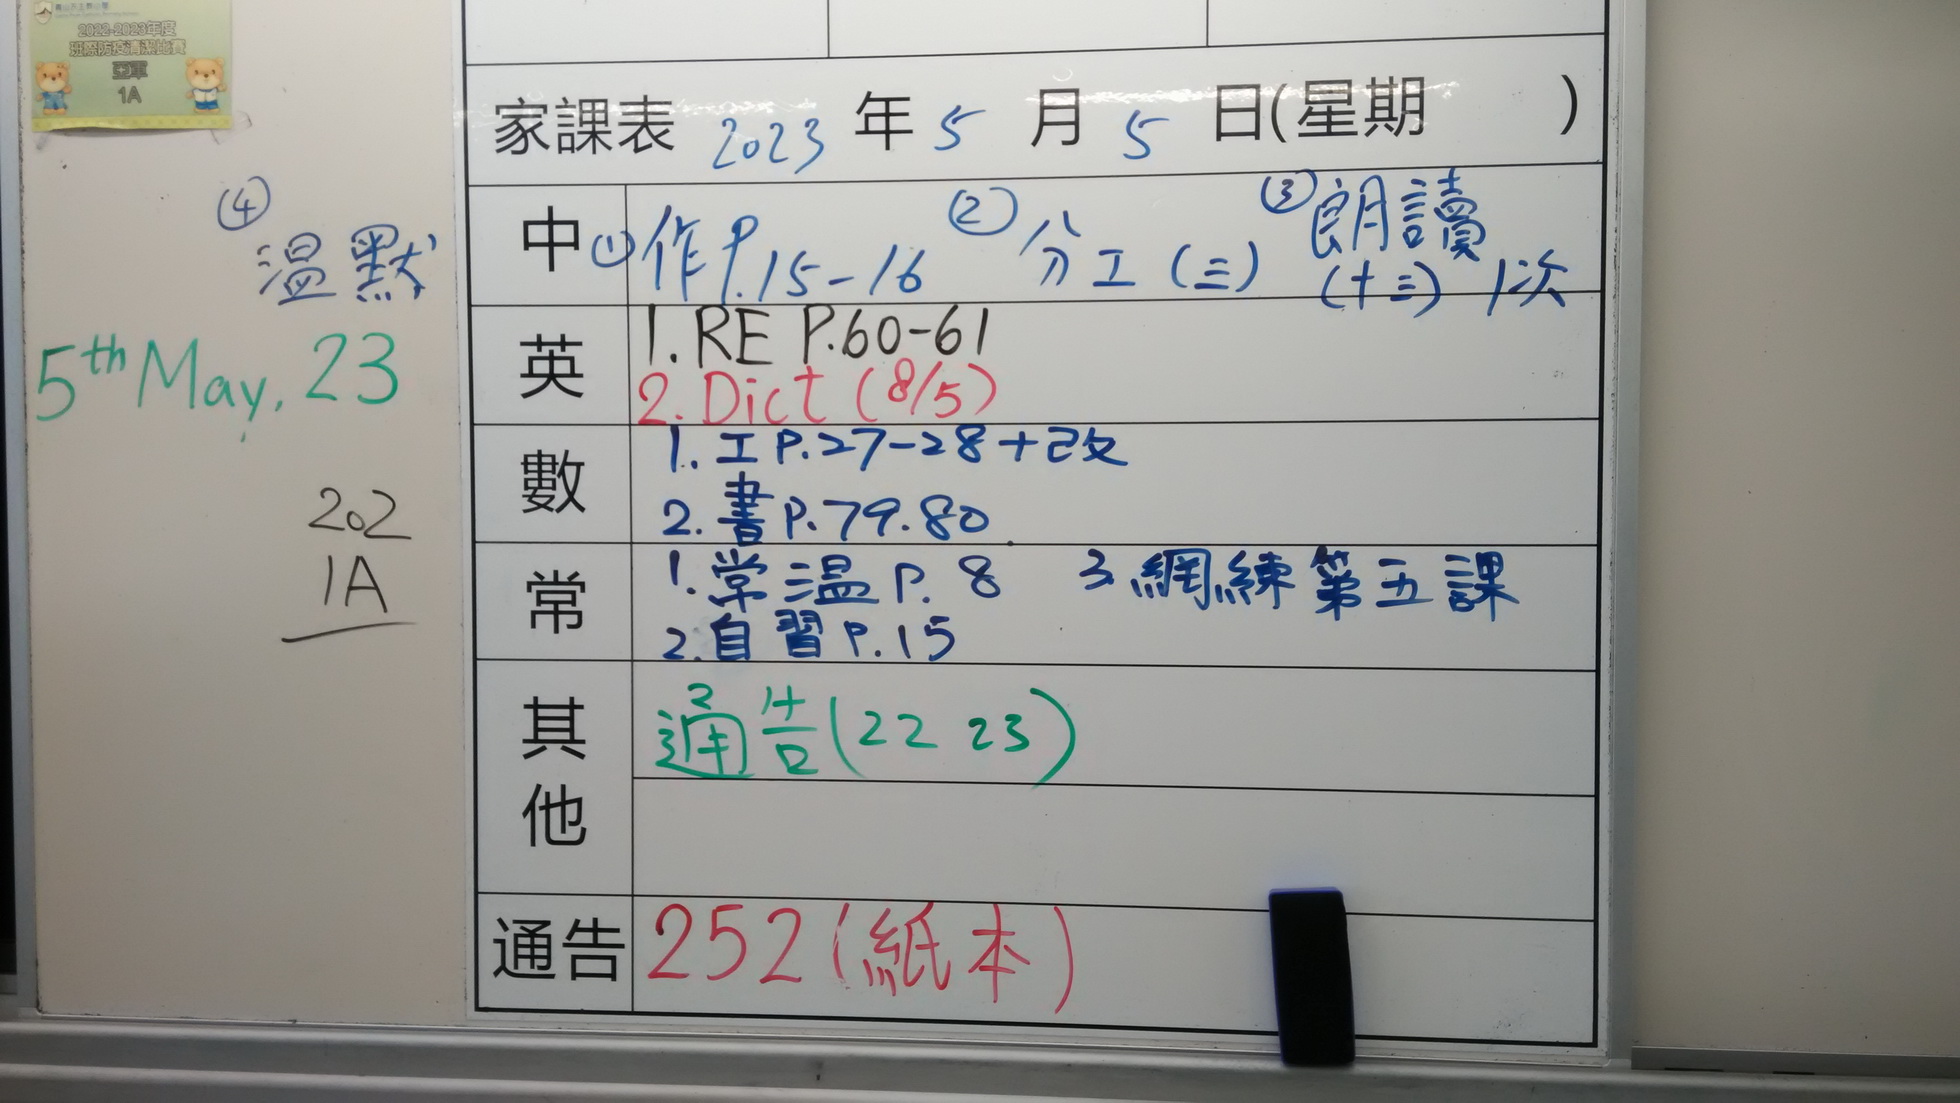 2022-2023年度
班際防疫清潔比賽
亞軍
1A
家課表 2023 年 5 月 5 日(星期 )
中 ①作P.15-16 ②分工(三) ③朗讀(十三)1次
④溫默
5th May, 23
202
1A
英 1. RE P.60-61
2. Dict (8/5)
數 1. 工P.27-28+改
2. 書P.79.80
常 1. 常溫P.8 3. 網練第五課
2. 自習P.15
其他 通告(22 23)
通告 252(紙本)